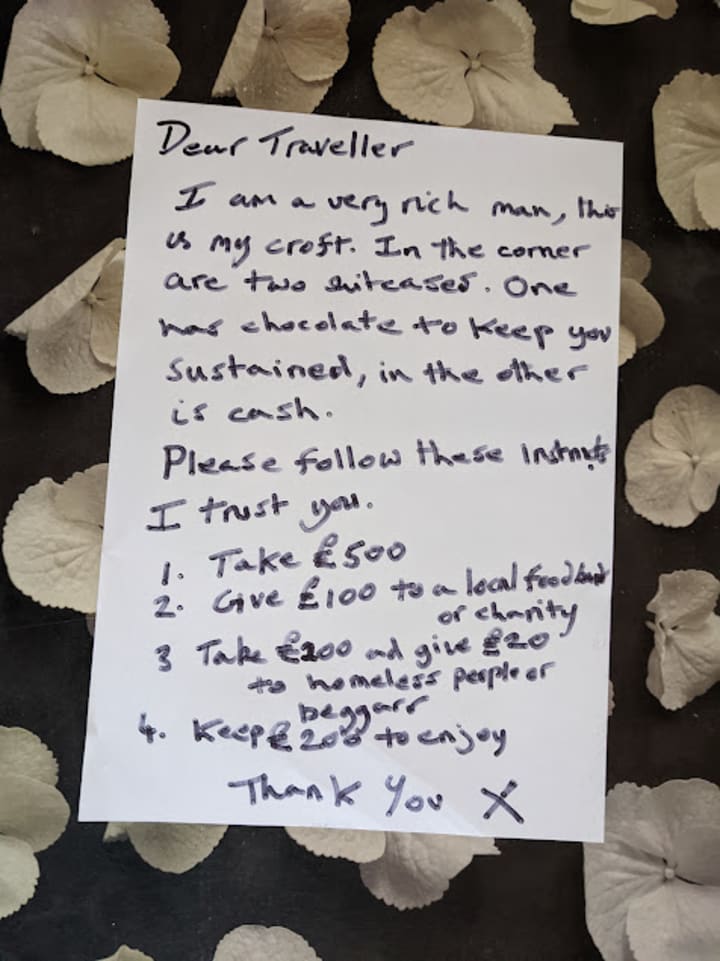 Dear Traveller
I am a very rich man, this
is my croft. In the corner
are two suitcases. One
has chocolate to keep you
sustained, in the other
is cash.
Please follow these
I trust you.
1. Take £500
2. Give £100 to a local foodbank
or charity
3 Take £200 ad give £20
to homeless people or
beggars
4. Keep £200 to enjoy
Thank You X